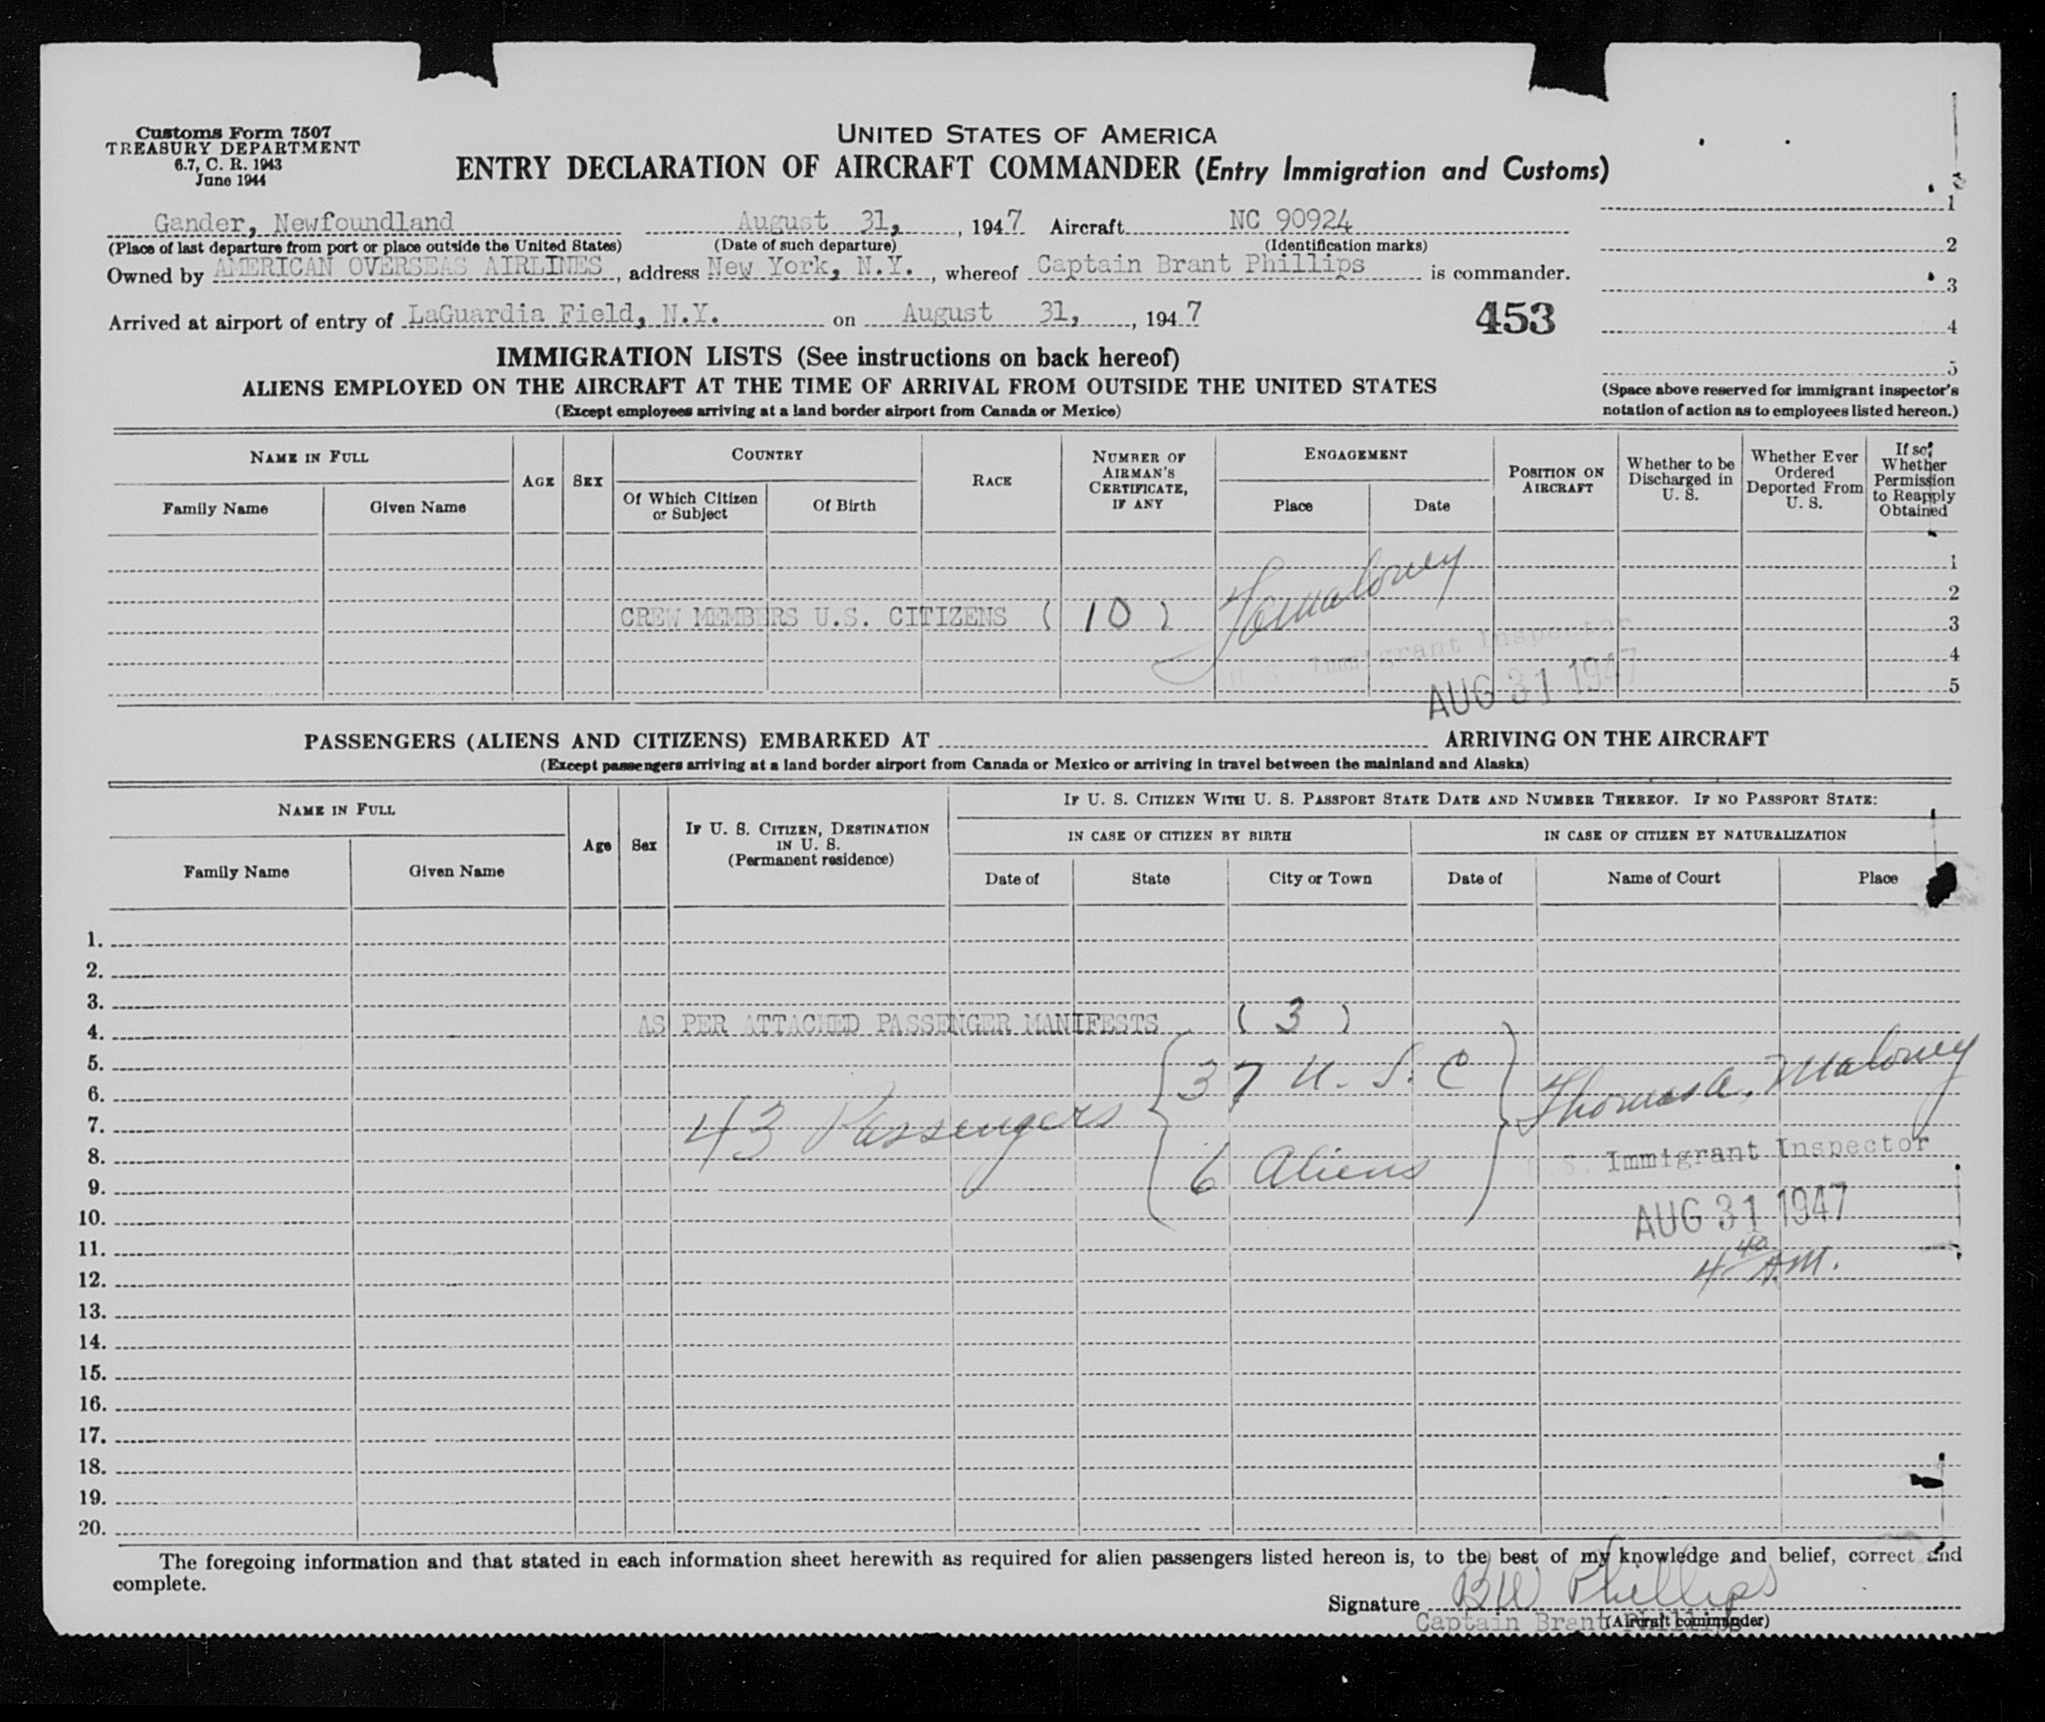 Customs Form 7507
TREASURY DEPARTMENT
6.7, C. R. 1943
June 1944
UNITED STATES OF AMERICA
ENTRY DECLARATION OF AIRCRAFT COMMANDER (Entry Immigration and Customs)
Gander, Newfoundland August 31, , 1947 Aircraft NC 90924
(Place of last departure from port or place outside the United States) (Date of such departure) (Identification marks)
Owned by AMERICAN OVERSEAS AIRLINES , address New York, N.Y. , whereof Captain Brant Phillips is commander.
Arrived at airport of entry of LaGuardia Field, N.Y. on August 31, , 1947
453
1
2
3
4
5
(Space above reserved for immigrant inspector's
notation of action as to employees listed hereon.)
IMMIGRATION LISTS (See instructions on back hereof)
ALIENS EMPLOYED ON THE AIRCRAFT AT THE TIME OF ARRIVAL FROM OUTSIDE THE UNITED STATES
(Except employees arriving at a land border airport from Canada or Mexico)
NAME IN FULL
Family Name
Given Name
AGE
SEX
COUNTRY
Of Which Citizen
or Subject
Of Birth
RACE
NUMBER OF
AIRMAN'S
CERTIFICATE,
IF ANY
ENGAGEMENT
Place
Date
POSITION ON
AIRCRAFT
Whether to be
Discharged in
U. S.
Whether Ever
Ordered
Deported From
U. S.
If so,
Whether
Permission
to Reapply
Obtained
1
2
3
4
5
CREW MEMBERS U.S. CITIZENS ( 10 )
Maloney
U. S. Immigrant Inspector
AUG 31 1947
PASSENGERS (ALIENS AND CITIZENS) EMBARKED AT ARRIVING ON THE AIRCRAFT
(Except passengers arriving at a land border airport from Canada or Mexico or arriving in travel between the mainland and Alaska)
NAME IN FULL
Family Name
Given Name
Age
Sex
IF U. S. CITIZEN, DESTINATION
IN U. S.
(Permanent residence)
IF U. S. CITIZEN WITH U. S. PASSPORT STATE DATE AND NUMBER THEREOF. IF NO PASSPORT STATE:
IN CASE OF CITIZEN BY BIRTH
IN CASE OF CITIZEN BY NATURALIZATION
Date of
State
City or Town
Date of
Name of Court
Place
1.
2.
3.
4.
AS PER ATTACHED PASSENGER MANIFESTS ( 3 )
5.
6.
7.
8.
9.
10.
43 Passengers
37 U. S. C
6 Aliens
Thomas A. Maloney
U. S. Immigrant Inspector
AUG 31 1947
4 40 A.M.
11.
12.
13.
14.
15.
16.
17.
18.
19.
20.
The foregoing information and that stated in each information sheet herewith as required for alien passengers listed hereon is, to the best of my knowledge and belief, correct and
complete.
Signature BW Phillips
Captain Brant Phillips
(Aircraft commander)